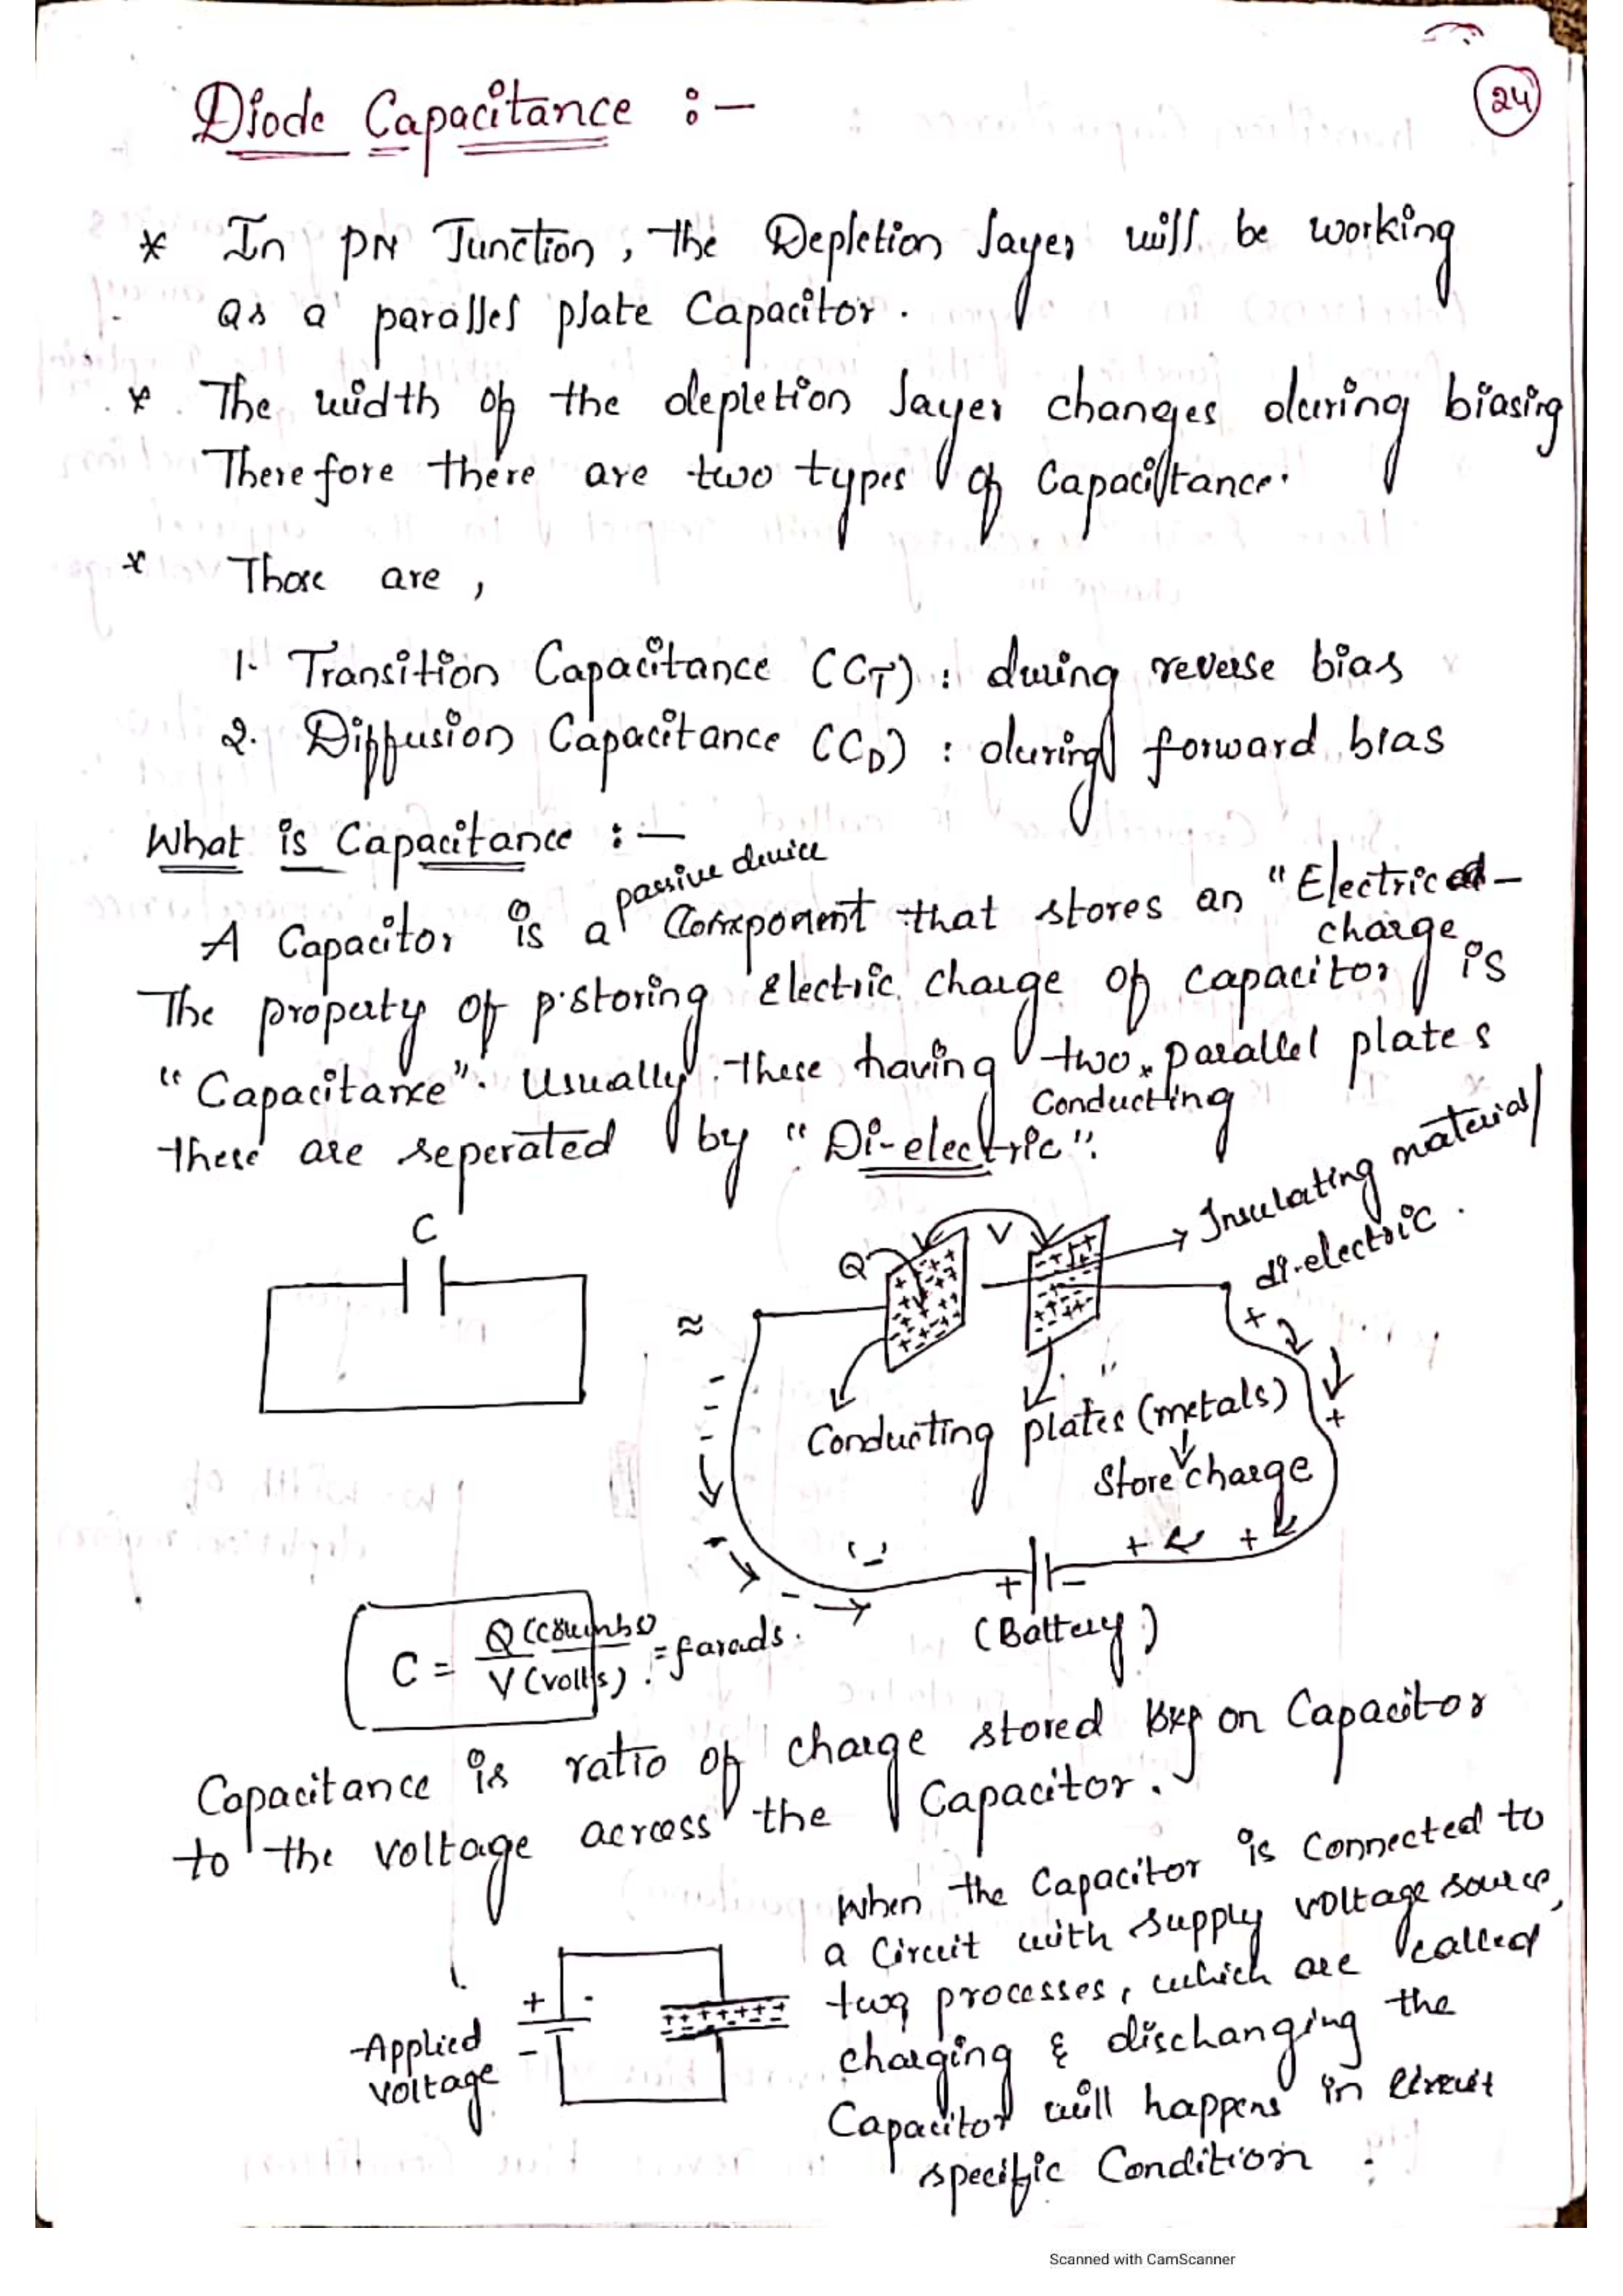 24
Diode Capacitance :-
* In PN Junction, the Depletion layer will be working
as a parallel plate Capacitor.
* The width of the depletion layer changes during biasing
Therefore there are two types of Capacitance.
* Those are,
1. Transition Capacitance (CT) : during reverse bias
2. Diffusion Capacitance (CD) : during forward bias
What is Capacitance :-
passive device
A Capacitor is a Component that stores an "Electric
charge
The property of storing electric charge of capacitor is
"Capacitance". Usually these having two parallel plates
Conducting
these are seperated by "Di-electric".
Insulating material
di-electric.
C
Q
V
≈
Conducting plates (metals)
Store charge
+ -
(Battery)
C = Q (coulumbs) / V (volts) = farads.
Capacitance is ratio of charge stored on Capacitor
to the voltage across the Capacitor.
When the Capacitor is Connected to
a Circuit with supply voltage source,
two processes, which are called
charging & dischanging the
Capacitor will happens in circuit
specific Condition.
+
-
Applied
voltage
Scanned with CamScanner